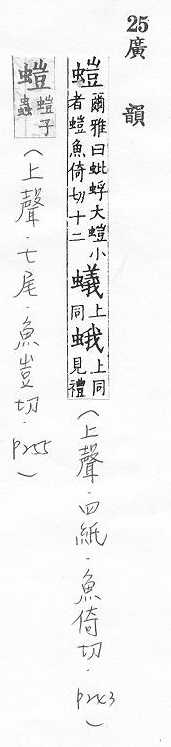 25
廣韻
螘爾雅曰蚍蜉大螘小
者螘魚倚切十二蟻上同蛾上同見禮
(上聲.四紙.魚倚切.P243)
螘螘子蟲
(上聲.七尾.魚豈切.P255)